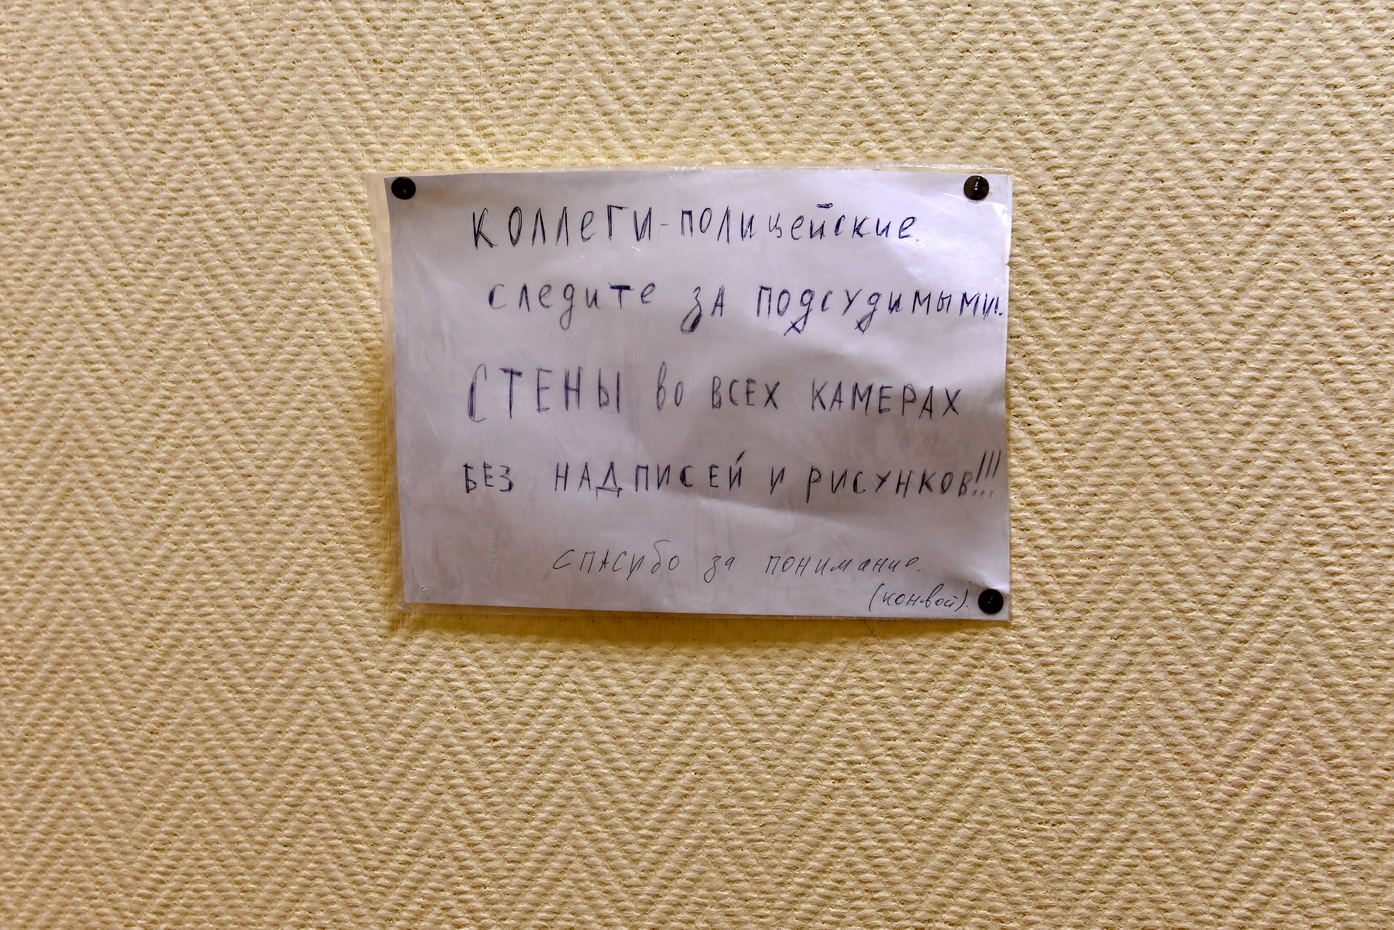 КОЛЛЕГИ-ПОЛИЦЕЙСКИЕ
следите ЗА ПОДСУДИМЫМИ!
СТЕНЫ во ВСЕХ КАМЕРАХ
БЕЗ НАДПИСЕЙ И РИСУНКОВ!!!
спасибо за понимание.
(конвой).